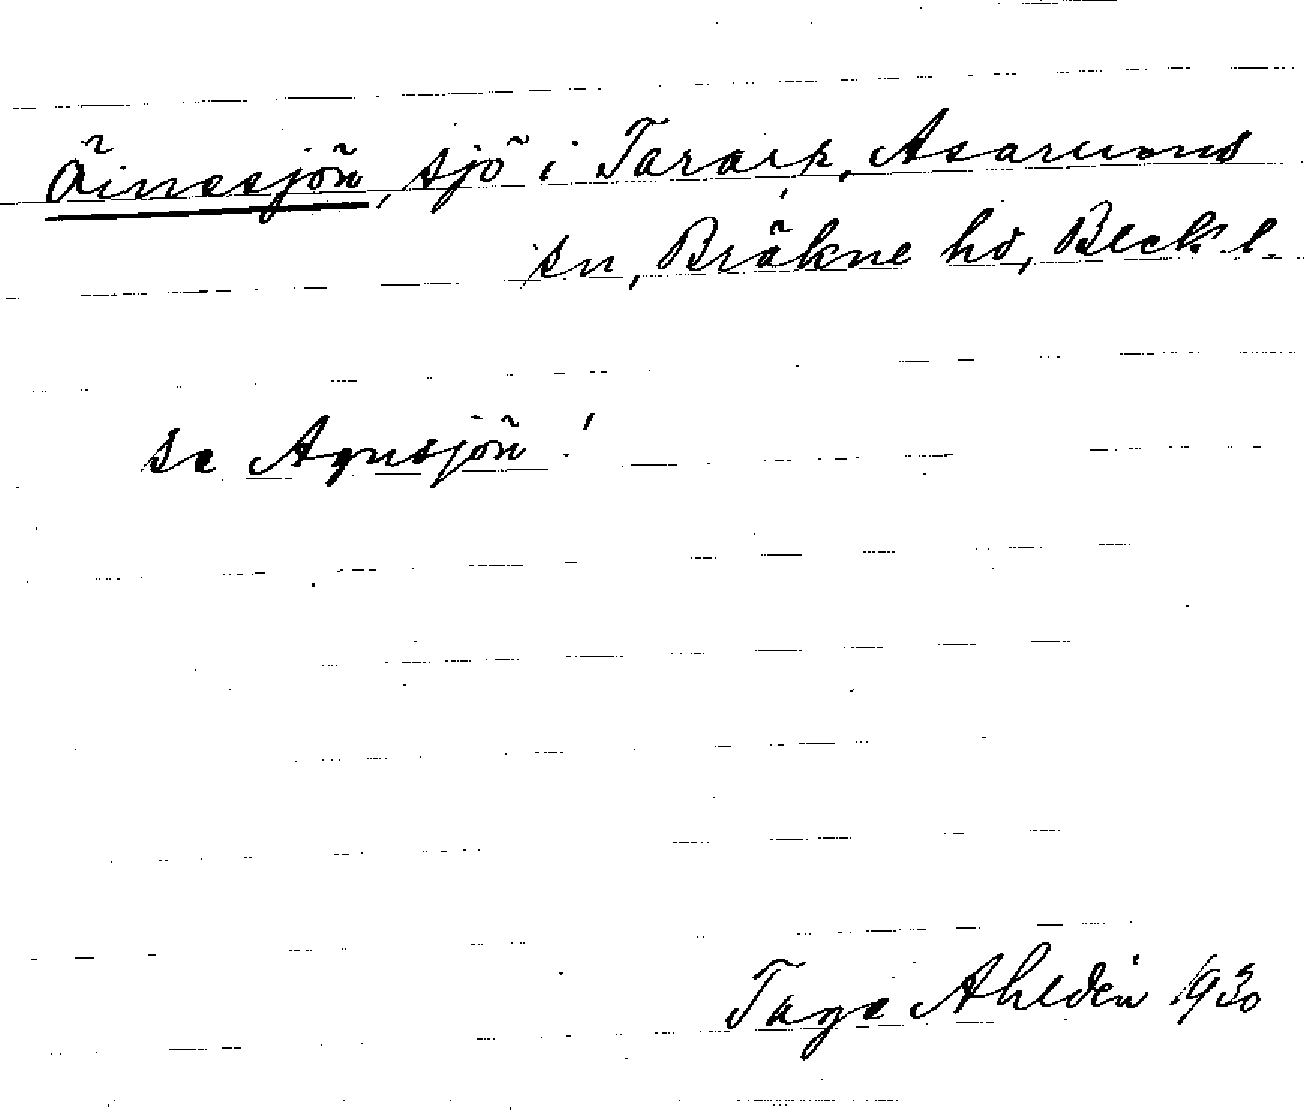 Äinesjön, sjö i Tararp, Asarums
sn, Bräkne hd, Blek. l.
se Agnsjön!
Tage Ahldén 1930